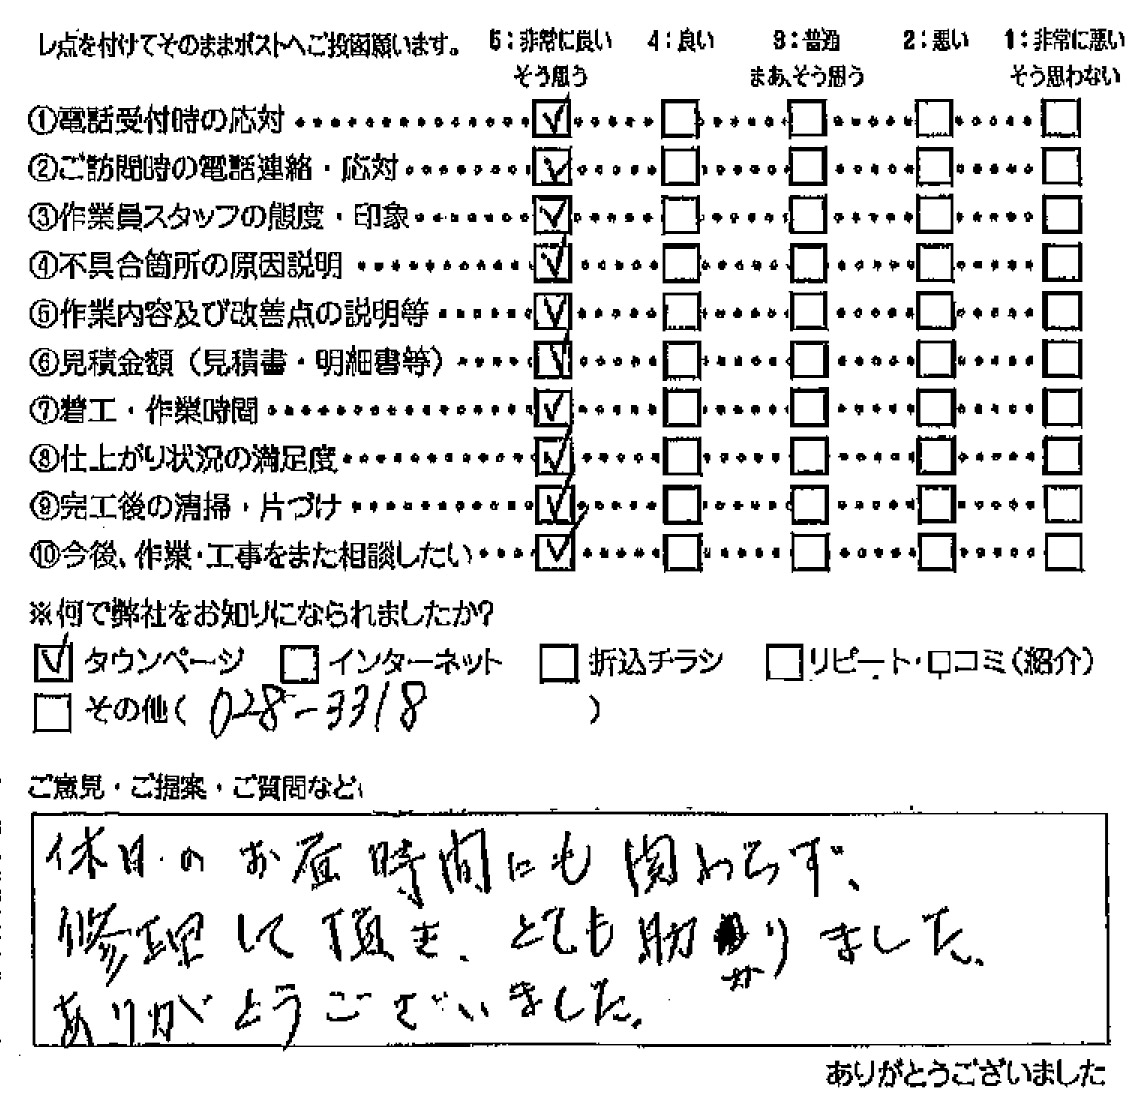 レ点を付けてそのままポストへご投函願います。 5：非常に良い 4：良い 3：普通 2：悪い 1：非常に悪い
そう思う まあ、そう思う そう思わない
①電話受付時の応対
②ご訪問時の電話連絡・応対
③作業員スタッフの態度・印象
④不具合箇所の原因説明
⑤作業内容及び改善点の説明等
⑥見積金額（見積書・明細書等）
⑦着工・作業時間
⑧仕上がり状況の満足度
⑨完工後の清掃・片づけ
⑩今後、作業・工事をまた相談したい
※何で弊社をお知りになられましたか？
タウンページ インターネット 折込チラシ リピート・口コミ（紹介）
その他（ 028-3318 ）
ご意見・ご提案・ご質問など
休日のお昼時間にも関わらず、
修理して頂き、とても助かりました。
ありがとうございました。
ありがとうございました